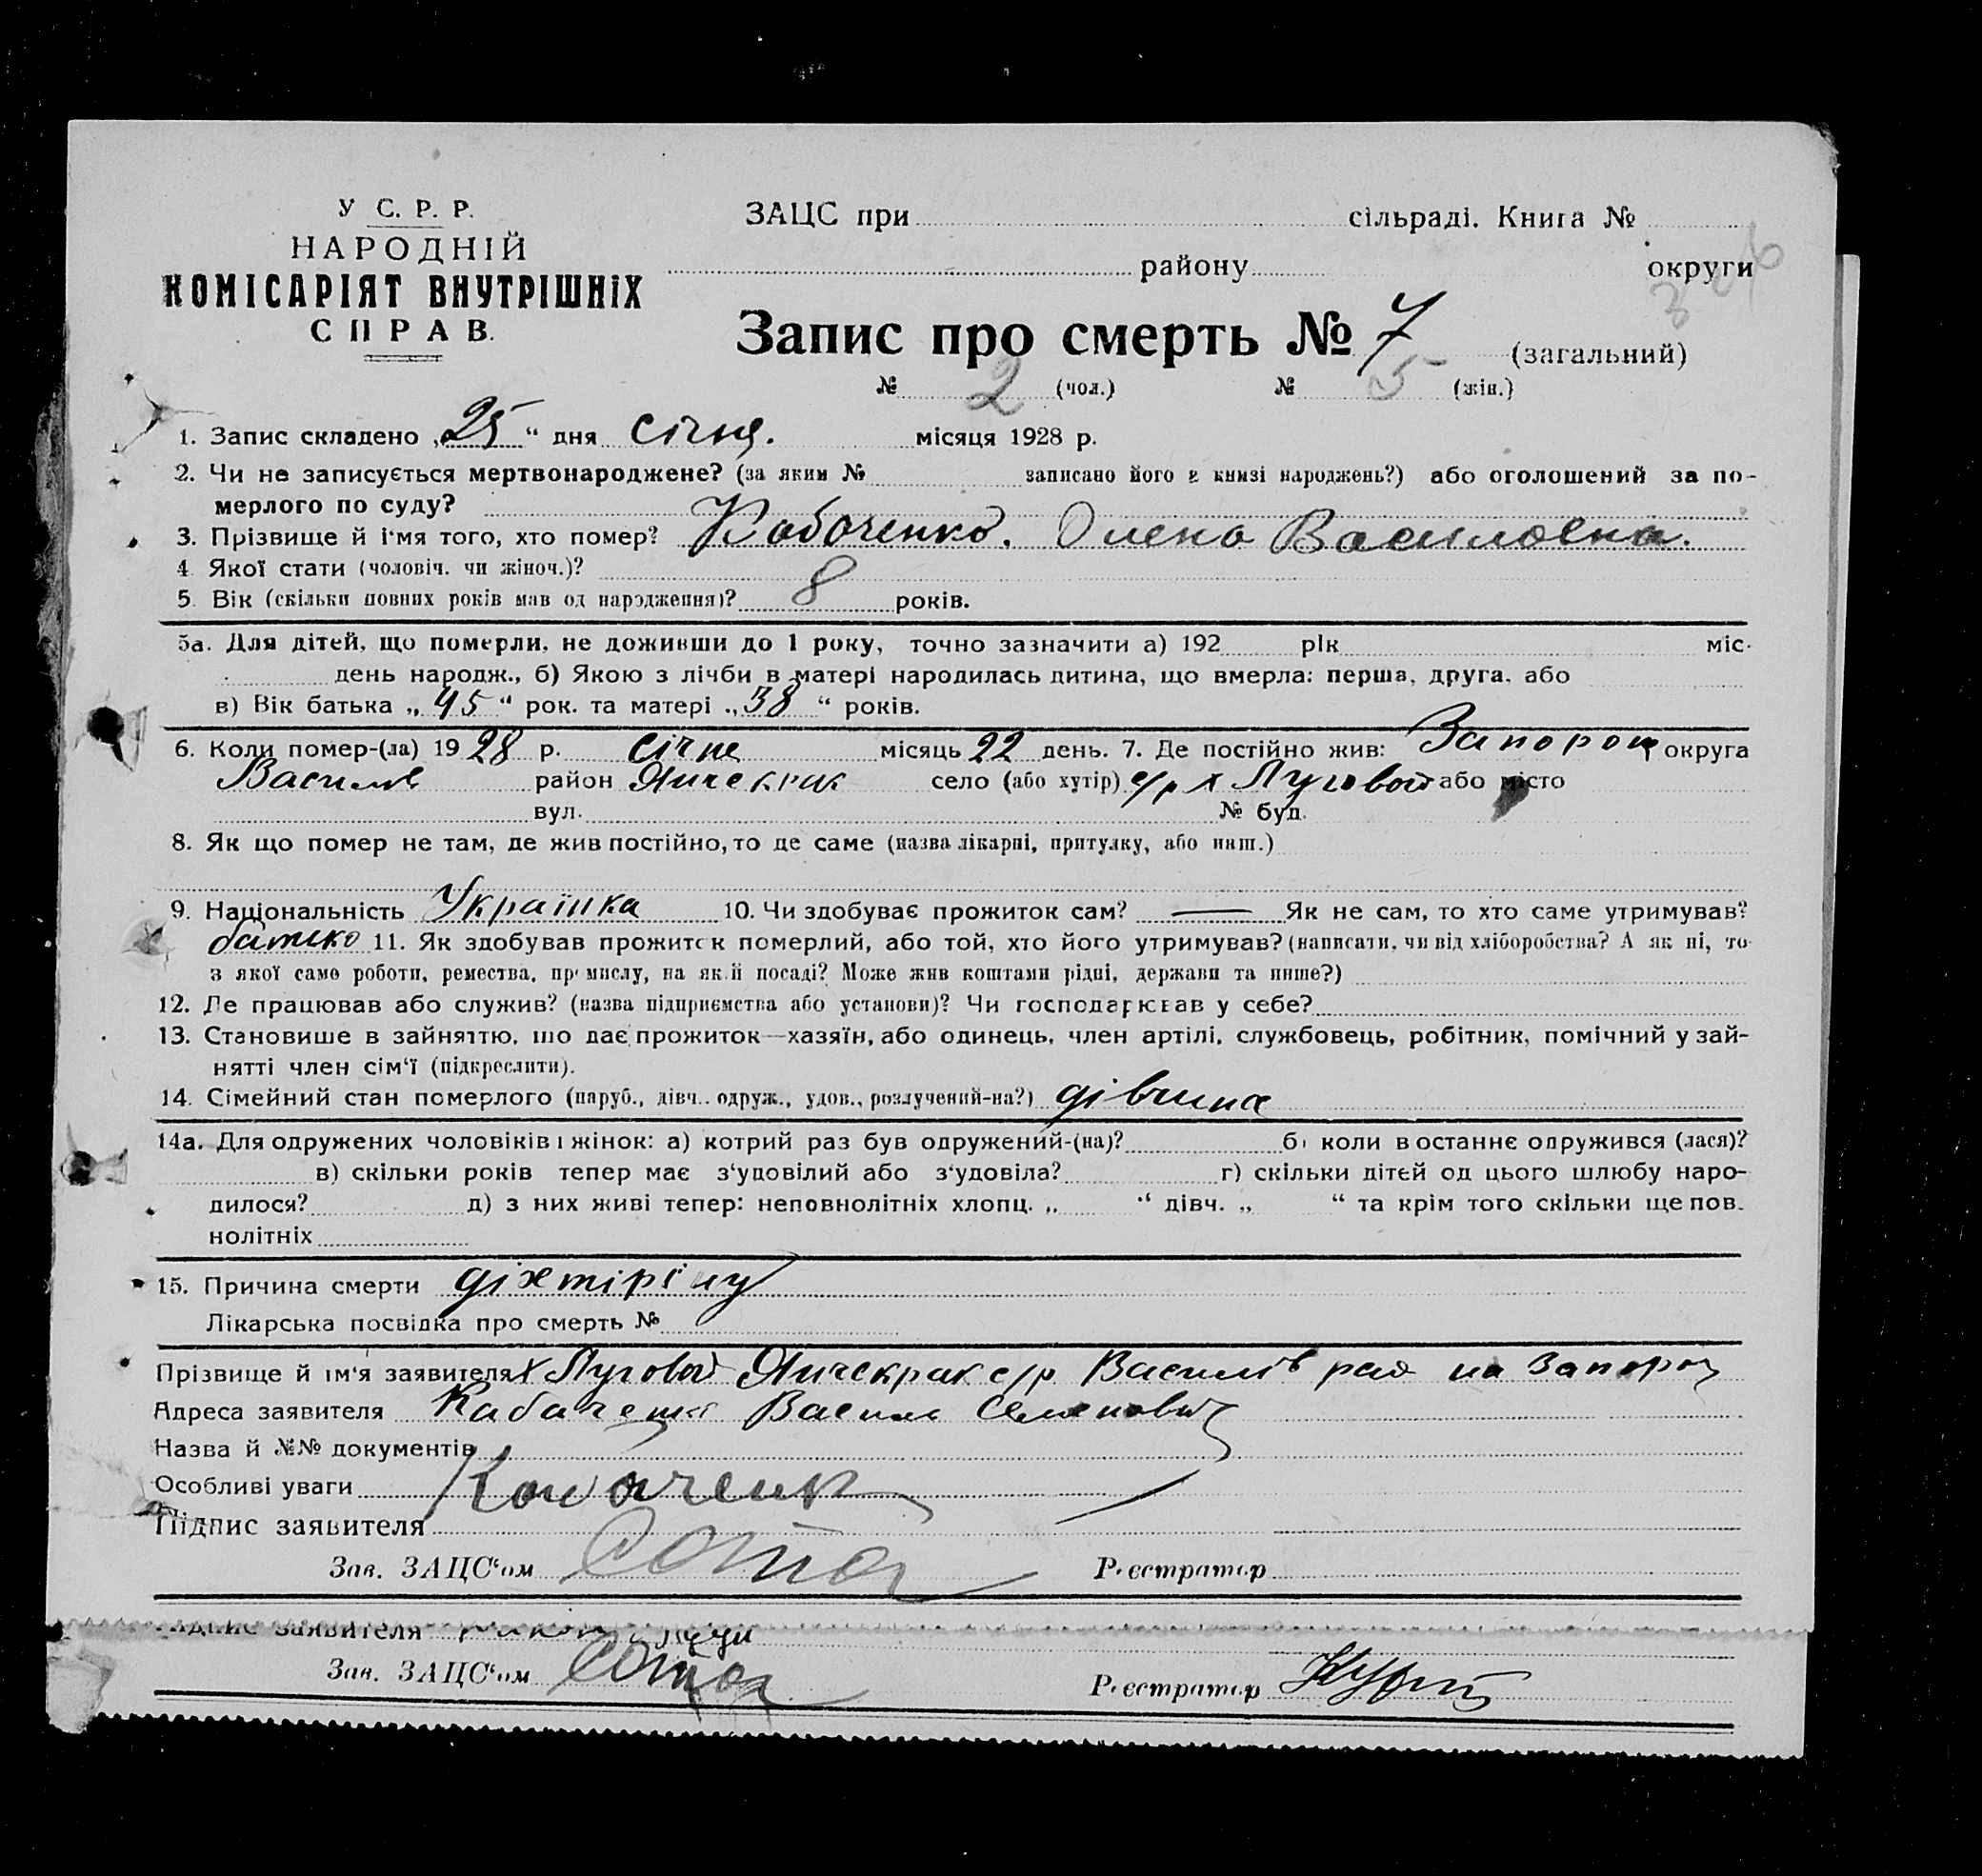 У С. Р. Р.
НАРОДНІЙ
КОМІСАРІЯТ ВНУТРІШНІХ
СПРАВ.
ЗАЦС при сільраді. Книга №
району округи
Запис про смерть № 7 (загальний)
№ 2 (чол.) № 5 (жін.)
1. Запис складено „25“ дня січня. місяця 1928 р.
2. Чи не записується мертвонароджене? (за яким № записано його в книзі народжень?) або оголошений за по-
мерлого по суду?
3. Прізвище й ім‘я того, хто помер? Кабаченко. Олена Василовна.
4 Якої стати (чоловіч. чи жіноч.)?
5. Вік (скільки повних років мав од народження)? 8 років.
5а. Для дітей, що померли, не доживши до 1 року, точно зазначити а) 192 рік міс.
день народж., б) Якою з лічби в матері народилась дитина, що вмерла: перша, друга, або
в) Вік батька „45“ рок. та матері „38“ років.
6. Коли помер-(ла) 1928 р. січне місяць 22 день. 7. Де постійно жив: Запорож округа
Василів район Янчекрак село (або хутір) с/р х Луговой або місто
вул. № буд.
8. Як що помер не там, де жив постійно, то де саме (назва лікарні, притулку, або инш.)
9. Національність Українка 10. Чи здобуває прожиток сам? — Як не сам, то хто саме утримував?
батько 11. Як здобував прожиток померлий, або той, хто його утримував? (написати, чи від хліборобства? А як ні, то
з якої саме роботи, ремества, промислу, на якій посаді? Може жив коштами рідні, держави та инше?)
12. Де працював або служив? (назва підприємства або установи)? Чи господарював у себе?
13. Становище в зайняттю, що дає прожиток—хазяїн, або одинець, член артілі, службовець, робітник, помічний у зай-
нятті член сім‘ї (підкреслити).
14. Сімейний стан померлого (паруб., дівч., одруж., удов., розлучений-на?) дівчина
14а. Для одружених чоловіків і жінок: а) котрий раз був одружений-(на)? б) коли в останнє одружився (лася)?
в) скільки років тепер має з‘удовілий або з‘удовіла? г) скільки дітей од цього шлюбу наро-
дилося? д) з них живі тепер: неповнолітніх хлопц. „ “ дівч. „ “ та крім того скільки ще пов-
нолітніх
15. Причина смерти діхтіріпу
Лікарська посвідка про смерть №
Прізвище й ім‘я заявителя х Луговой Янчекрак с/р Василів рай на Запорож
Адреса заявителя Кабаченко Василь Семенович
Назва й №№ документів
Особливі уваги
Підпис заявителя
Зав. ЗАЦС‘ом Реєстратор
Підпис заявителя
Зав. ЗАЦС‘ом Реєстратор